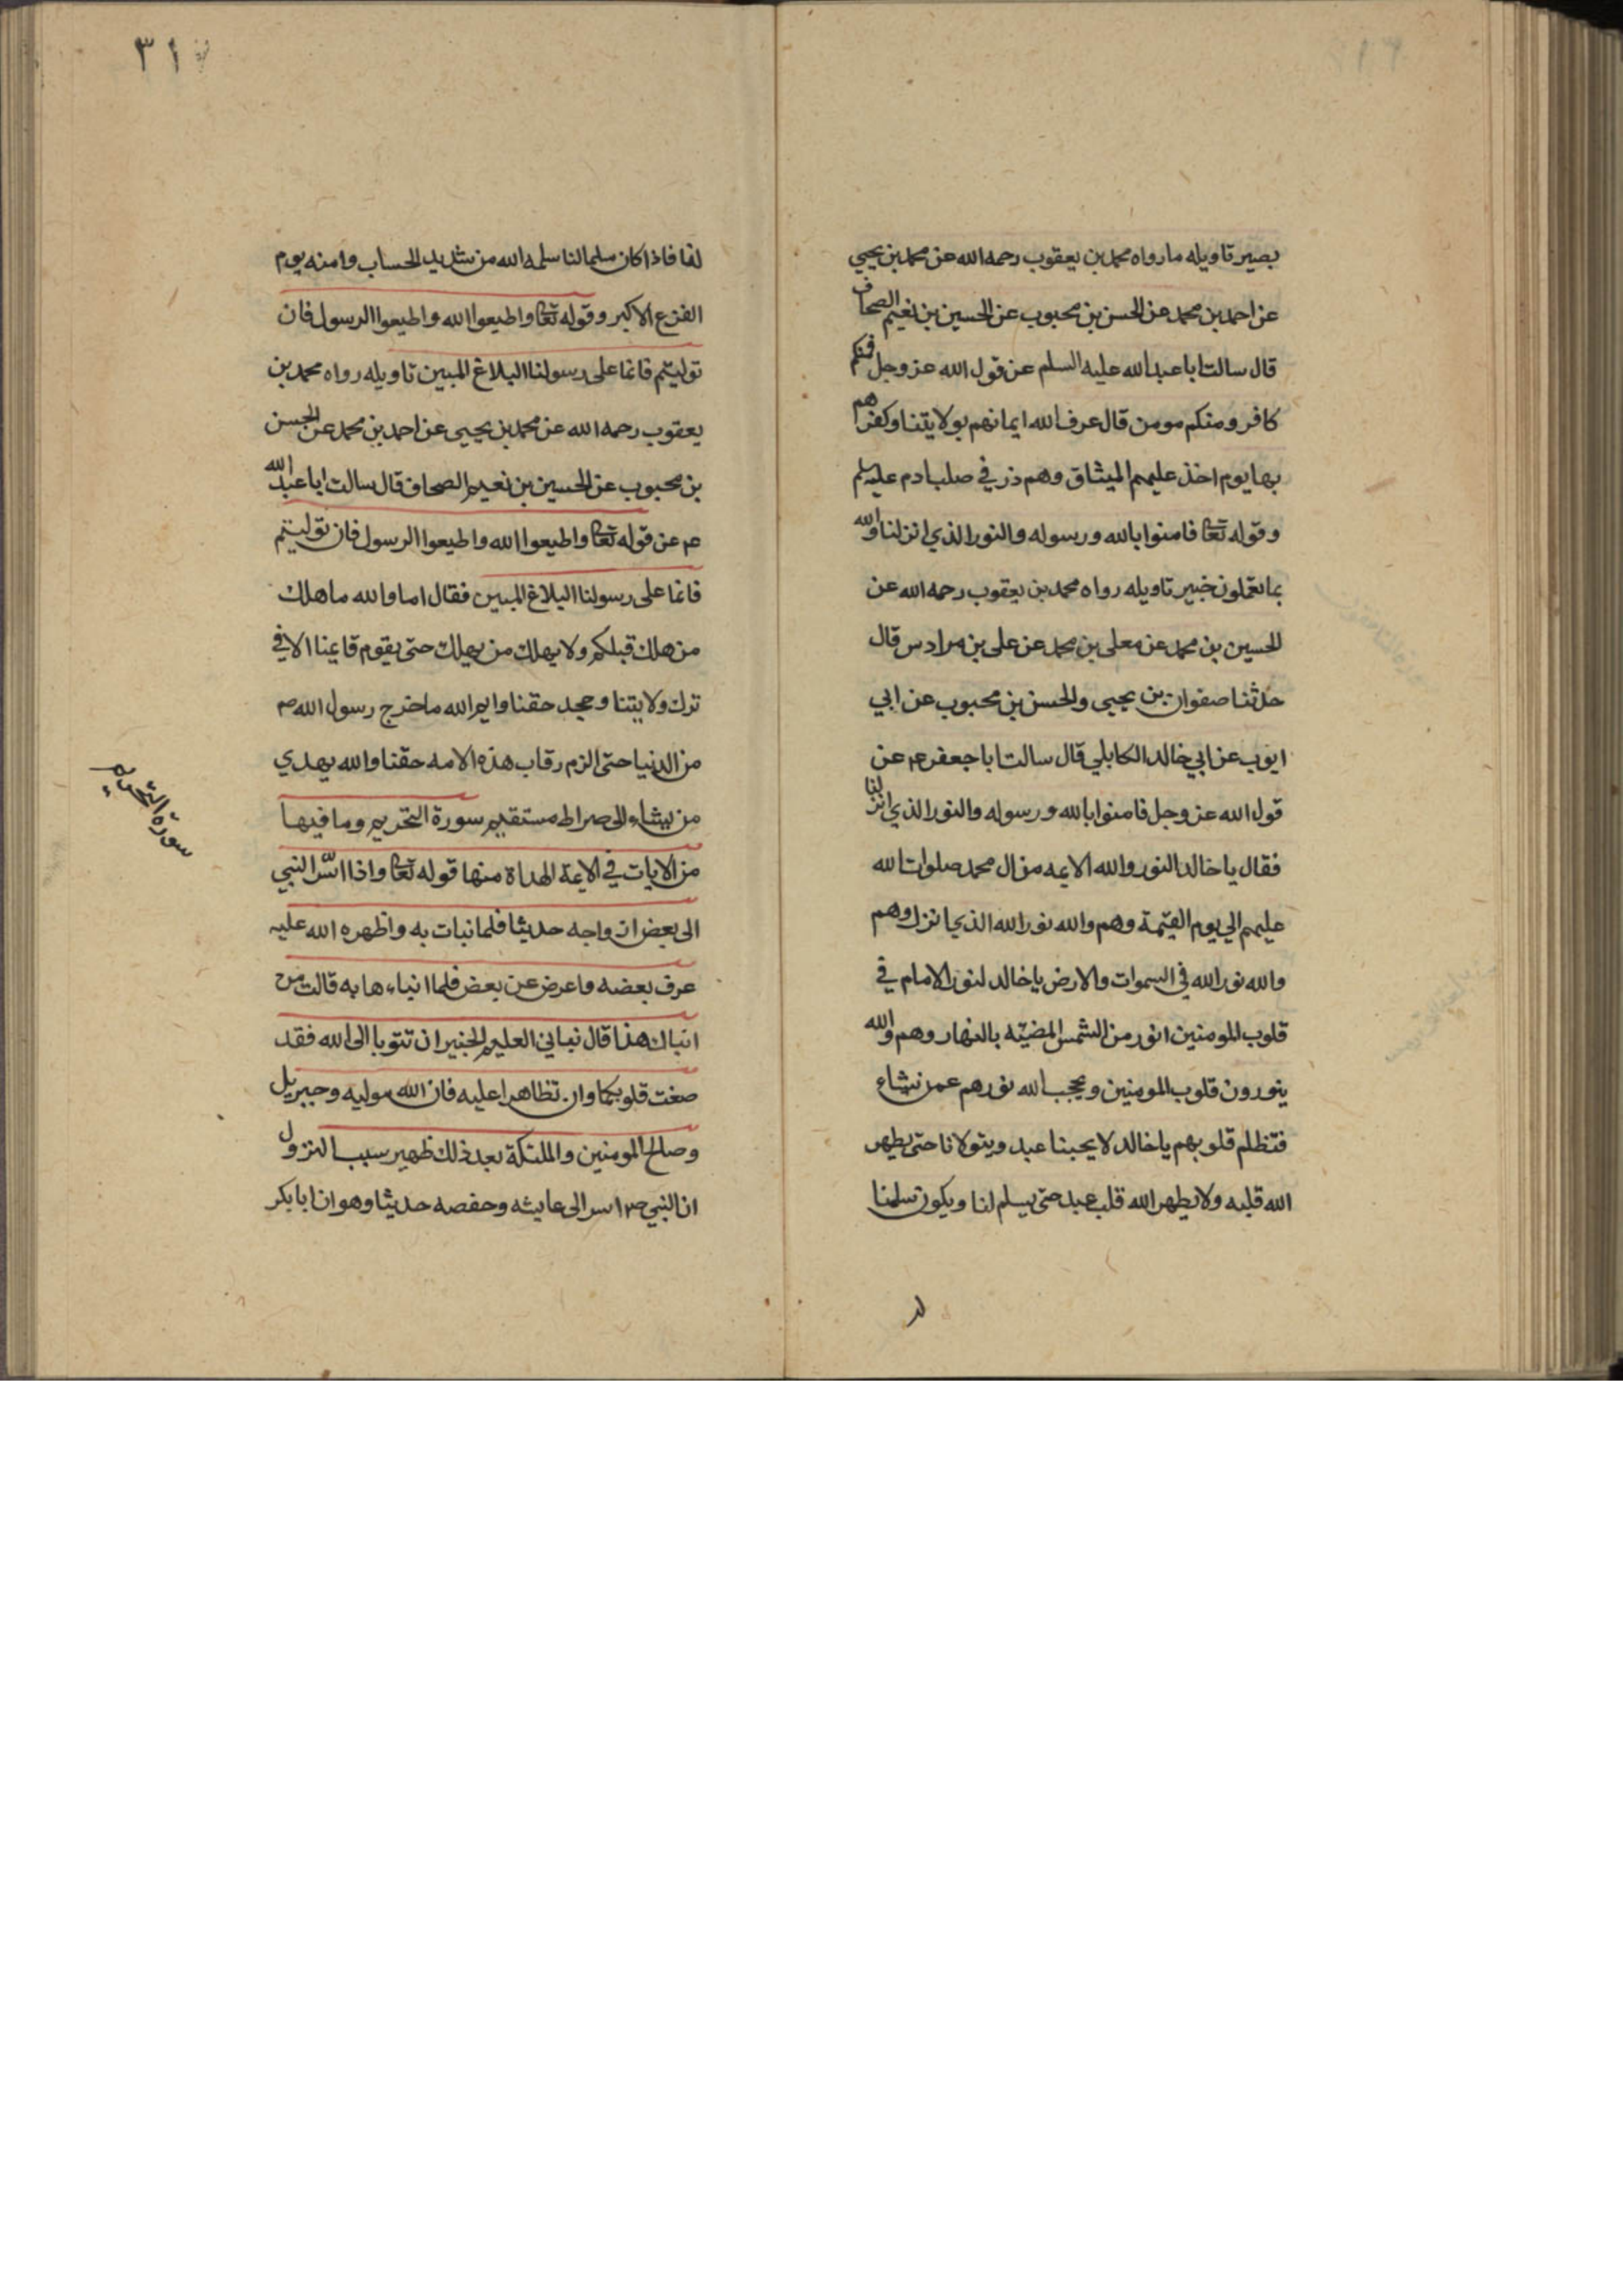 بصير تاويله ما رواه محمد بن يعقوب رحمه الله عن محمد بن يحيى
عن احمد بن محمد عن الحسن بن محبوب عن الحسين بن نعيم الصحاف
قال سالت ابا عبد الله عليه السلم عن قول الله عز وجل فمنكم
كافر ومنكم مومن قال عرف الله ايمانهم بولايتنا وكفرهم
بها يوم اخذ عليهم الميثاق وهم ذر في صلب ادم عليه السلم
وقوله تعا فامنوا بالله ورسوله والنور الذي انزلنا والله
بما تعملون خبير تاويله رواه محمد بن يعقوب رحمه الله عن
الحسين بن محمد عن معلى بن محمد عن على بن مرادس قال
حدثنا صفوان بن يحيى والحسن بن محبوب عن ابي
ايوب عن ابي خالد الكابلي قال سالت ابا جعفر عم عن
قول الله عز وجل فامنوا بالله ورسوله والنور الذي انزلنا
فقال يا خالد النور والله الايمه من ال محمد صلوات الله
عليهم الي يوم القيمة وهم والله نور الله الذي انزل وهم
والله نور الله في السموات والارض يا خالد لنور الامام في
قلوب المومنين انور من الشمس المضيئه بالنهار وهم والله
ينورون قلوب المومنين ويحجب الله نورهم عمن نشاء
فتظلم قلوبهم يا خالد لا يحبنا عبد ويتولانا حتى يطهر
الله قلبه ولا يطهر الله قلب عبد حتى يسلم لنا ويكون سلمنا
٣١
لنا فاذا كان سلما لنا سلمه الله من شديد الحساب وامنه يوم
الفزع الاكبر وقوله تعا واطيعوا الله واطيعوا الرسول فان
توليتم فانما على رسولنا البلاغ المبين تاويله رواه محمد بن
يعقوب رحمه الله عن محمد بن يحيى عن احمد بن محمد عن الحسن
بن محبوب عن الحسين بن نعيم الصحاف قال سالت ابا عبد الله
عم عن قوله تعا واطيعوا الله واطيعوا الرسول فان توليتم
فانما على رسولنا البلاغ المبين فقال اما والله ما هلك
من هلك قبلكم ولا يهلك من يهلك حتى يقوم قايمنا الا في
ترك ولايتنا وجحد حقنا وايم الله ما خرج رسول الله صم
من الدنيا حتى الزم رقاب هذه الامه حقنا والله يهدي
من يشاء الى صراط مستقيم سورة التحريم وما فيها
من الايات في الايمة الهداة منها قوله تعا واذا اسّر النبي
الى بعض ازواجه حديثا فلما نبات به واظهره الله عليه
عرف بعضه واعرض عن بعض فلما انباءها به قالت من
انباك هذا قال نباني العليم الخبير ان تتوبا الى الله فقد
صغت قلوبكما وان تظاهرا عليه فان الله موليه وجبريل
وصالح المومنين والملئكة بعد ذلك ظهير سبب النزول
ان النبي صم اسر الى عايشه وحفصه حديثا وهو ان ابا بكر
سورة التحريم